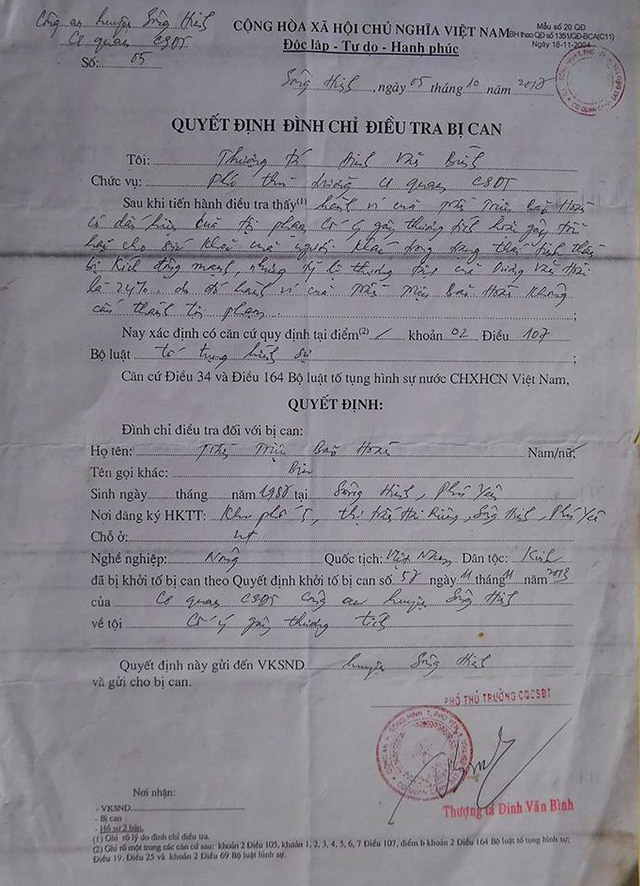 Công an huyện Sông Hinh
Cơ quan CSĐT
Số: 05
CỘNG HÒA XÃ HỘI CHỦ NGHĨA VIỆT NAM
Độc lập - Tự do - Hạnh phúc
Mẫu số 20 QĐ
BH theo QĐ số 1351/QĐ-BCA(C11)
Ngày 18-11-2004
Sông Hinh, ngày 05 tháng 10 năm
QUYẾT ĐỊNH ĐÌNH CHỈ ĐIỀU TRA BỊ CAN
Tôi: Thượng tá Đinh Văn Bình
Chức vụ: Phó thủ trưởng cơ quan CSĐT
Sau khi tiến hành điều tra thấy(1) hành vi của Trần Triệu Bảo Hoài
có dấu hiệu của tội phạm cố ý gây thương tích hoặc gây tổn
hại cho sức khỏe của người khác trong trạng thái tinh thần
bị kích động mạnh, nhưng tỷ lệ thương tích của Dương Văn
là 24%, do đó hành vi của Trần Triệu Bảo Hoài không
cấu thành tội phạm. ;
Nay xác định có căn cứ quy định tại điểm(2) / khoản 02 Điều 107
Bộ luật tố tụng hình sự ;
Căn cứ Điều 34 và Điều 164 Bộ luật tố tụng hình sự nước CHXHCN Việt Nam,
QUYẾT ĐỊNH:
Đình chỉ điều tra đối với bị can:
Họ tên: Trần Triệu Bảo Hoài Nam/nữ;
Tên gọi khác:
Sinh ngày tháng năm 1980 tại Sông Hinh, Phú Yên
Nơi đăng ký HKTT: Khu phố 5, thị trấn Hai Riêng, Sông Hinh, Phú Yên
Chỗ ở: nt
Nghề nghiệp: Nông Quốc tịch: Việt Nam Dân tộc: Kinh
đã bị khởi tố bị can theo Quyết định khởi tố bị can số 58 ngày 11 tháng 11 năm 2013
của Cơ quan CSĐT Công an huyện Sông Hinh
về tội Cố ý gây thương tích
Quyết định này gửi đến VKSND huyện Sông Hinh
và gửi cho bị can.
PHÓ THỦ TRƯỞNG CQCSĐT
Thượng tá Đinh Văn Bình
Nơi nhận:
- VKSND
- Bị can
- Hồ sơ 2 bản.
(1) Ghi rõ lý do đình chỉ điều tra.
(2) Ghi rõ một trong các căn cứ sau: khoản 2 Điều 105, khoản 1, 2, 3, 4, 5, 6, 7 Điều 107, điểm b khoản 2 Điều 164 Bộ luật tố tụng hình sự;
Điều 19, Điều 25 và khoản 2 Điều 69 Bộ luật hình sự.